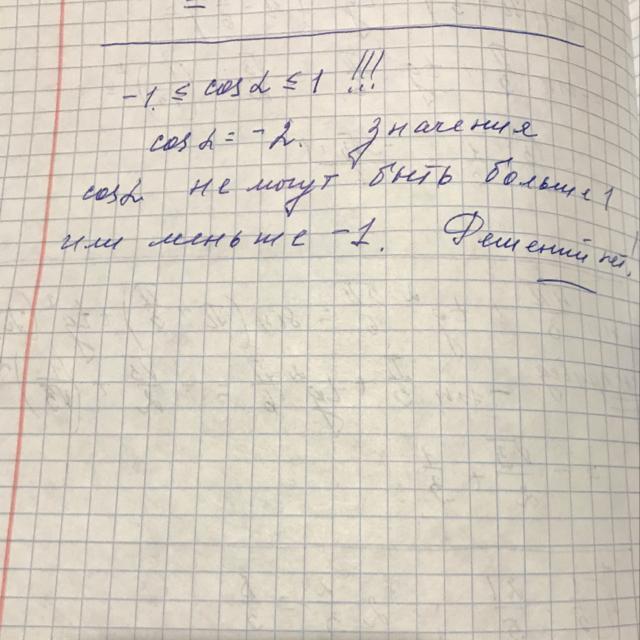 -1 ≤ cos α ≤ 1 !!!
cos α = -2. Значения
cos α не могут быть больше 1
или меньше -1. Решений нет.